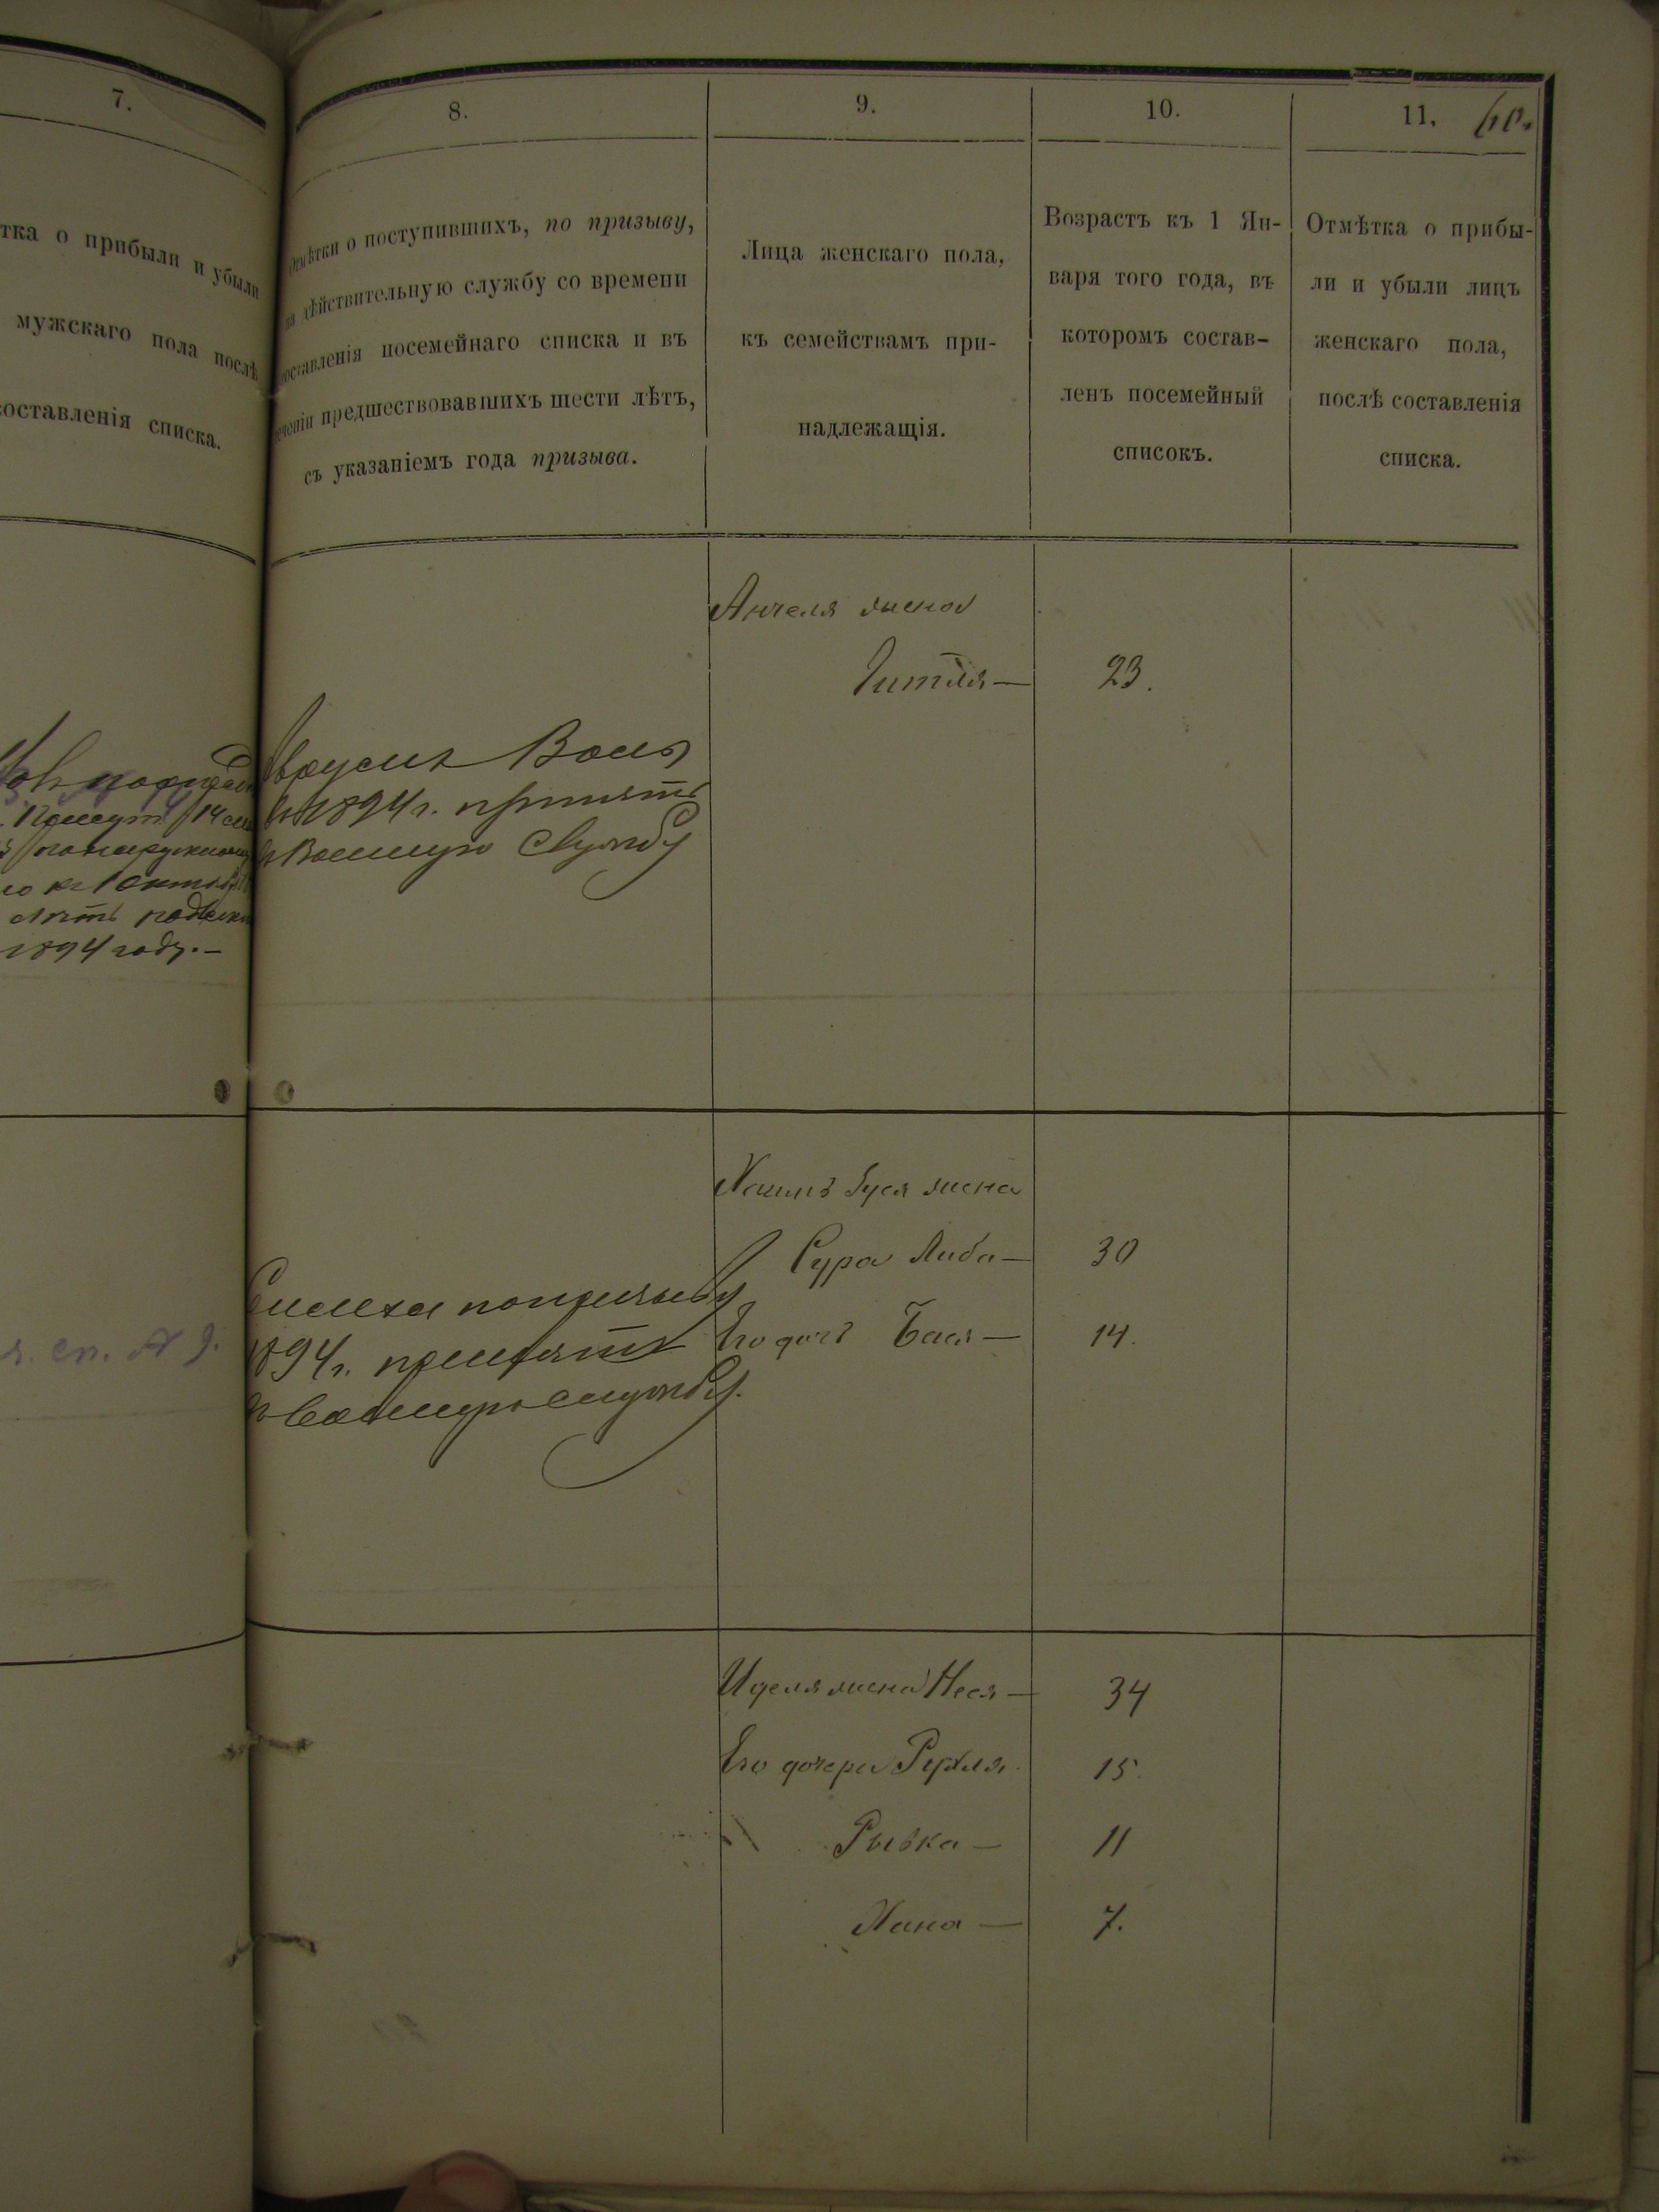 7.
тка о прибыли и убыли
мужскаго пола послѣ
составленія списка.
1894 году.—
8.
Отмѣтки о поступившихъ, по призыву,
на дѣйствительную службу со времени
составленія посемейнаго списка и въ
теченіи предшествовавшихъ шести лѣтъ,
съ указаніемъ года призыва.
9.
Лица женскаго пола,
къ семействамъ при-
надлежащія.
10.
Возрастъ къ 1 Ян-
варя того года, въ
которомъ состав-
ленъ посемейный
списокъ.
11.
60.
Отмѣтка о прибы-
ли и убыли лицъ
женскаго пола,
послѣ составленія
списка.
въ 1894 г. принятъ
въ Военную Службу
жена
Гитля — 23.
жена
Сура Либа — 30
Его дочь Бася — 14.
по призыву
1894 г. принятъ
въ военную службу.
Иделя жена Неся — 34
Его дочери Рухля. 15.
Рывка — 11
Хана — 7.